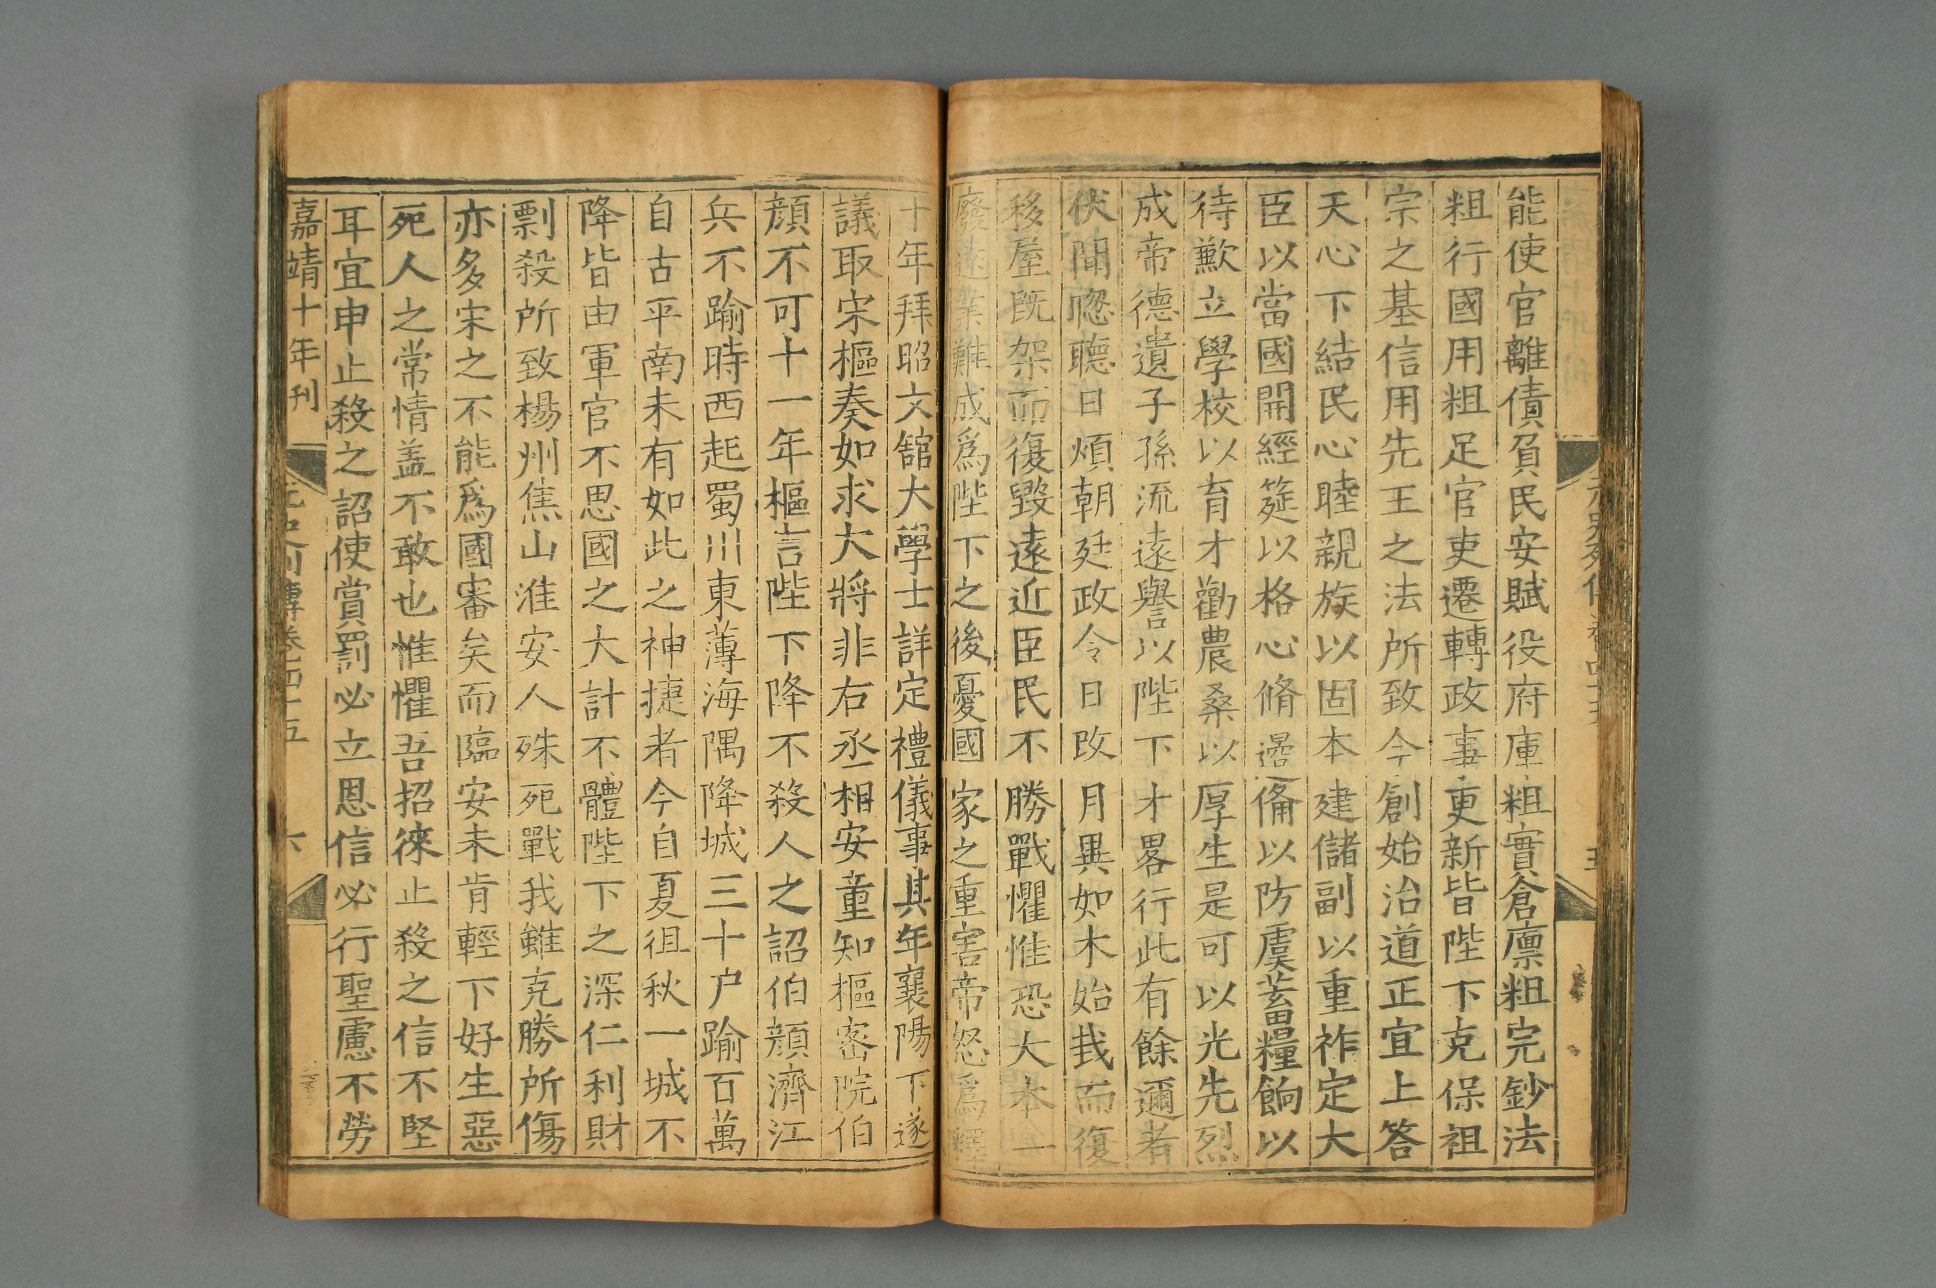 能使官離債負民安賦役府庫粗實倉廪粗完鈔法
粗行國用粗足官吏遷轉政事更新皆陛下克保祖
宗之基信用先王之法所致今創始治道正宜上答
天心下結民心睦親族以固本建儲副以重祚定大
臣以當國開經筵以格心脩邊備以防虞蓄糧餉以
待歉立學校以育才勸農桑以厚生是可以光先烈
成帝德遺子孫流遠譽以陛下才畧行此有餘邇者
伏聞聦聽日煩朝廷政令日改月異如木始栽而復
移屋旣架而復毀遠近臣民不勝戰懼惟恐大本一
廢遠業難成爲陛下之後憂國家之重害帝怒爲釋
十年拜昭文舘大學士詳定禮儀事其年襄陽下遂
議取宋樞奏如求大將非右丞相安童知樞密院伯
顔不可十一年樞言陛下降不殺人之詔伯顔濟江
兵不踰時西起蜀川東薄海隅降城三十户踰百萬
自古平南未有如此之神捷者今自夏徂秋一城不
降皆由軍官不思國之大計不體陛下之深仁利財
剽殺所致楊州焦山淮安人殊死戰我雖克勝所傷
亦多宋之不能爲國審矣而臨安未肯輕下好生惡
死人之常情盖不敢也惟懼吾招徠止殺之信不堅
耳宜申止殺之詔使賞罰必立恩信必行聖慮不勞
嘉靖十年刊
元史列傳卷四十五
六